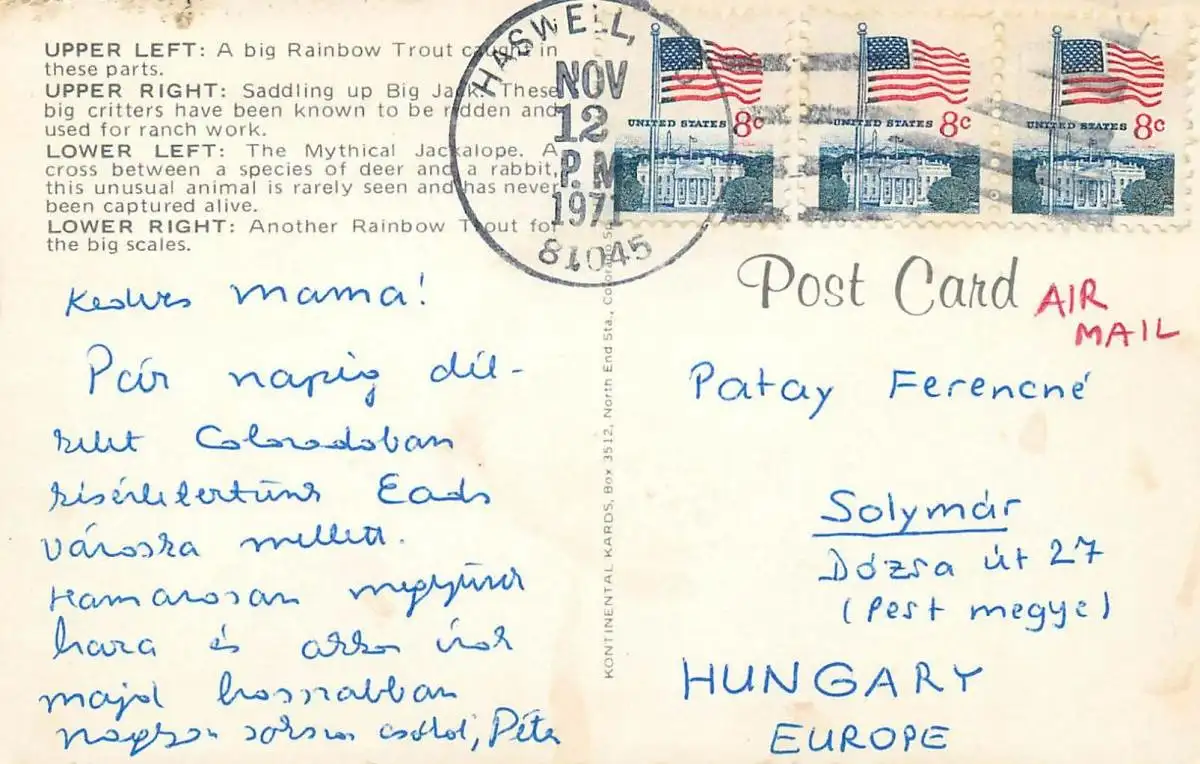 UPPER LEFT: A big Rainbow Trout caught in
these parts.
UPPER RIGHT: Saddling up Big Jack. These
big critters have been known to be ridden and
used for ranch work.
LOWER LEFT: The Mythical Jackalope. A
cross between a species of deer and a rabbit,
this unusual animal is rarely seen and has never
been captured alive.
LOWER RIGHT: Another Rainbow Trout for
the big scales.
HASWELL,
NOV
12
P.M
1971
81045
UNITED STATES 8c
UNITED STATES 8c
UNITED STATES 8c
Post Card
AIR
MAIL
Kedves Mama!
Pár napig dél-
kelet Coloradoban
kisérleteztünk Eads
városka mellett.
Hamarosan megyünk
haza és akkor írok
majd hosszabban
nagyon sokszor csókol, Péter
KONTINENTAL KARDS, Box 3512, North End Sta., Colorado Sp
Patay Ferencné
Solymár
Dózsa út 27
(Pest megye)
HUNGARY
EUROPE